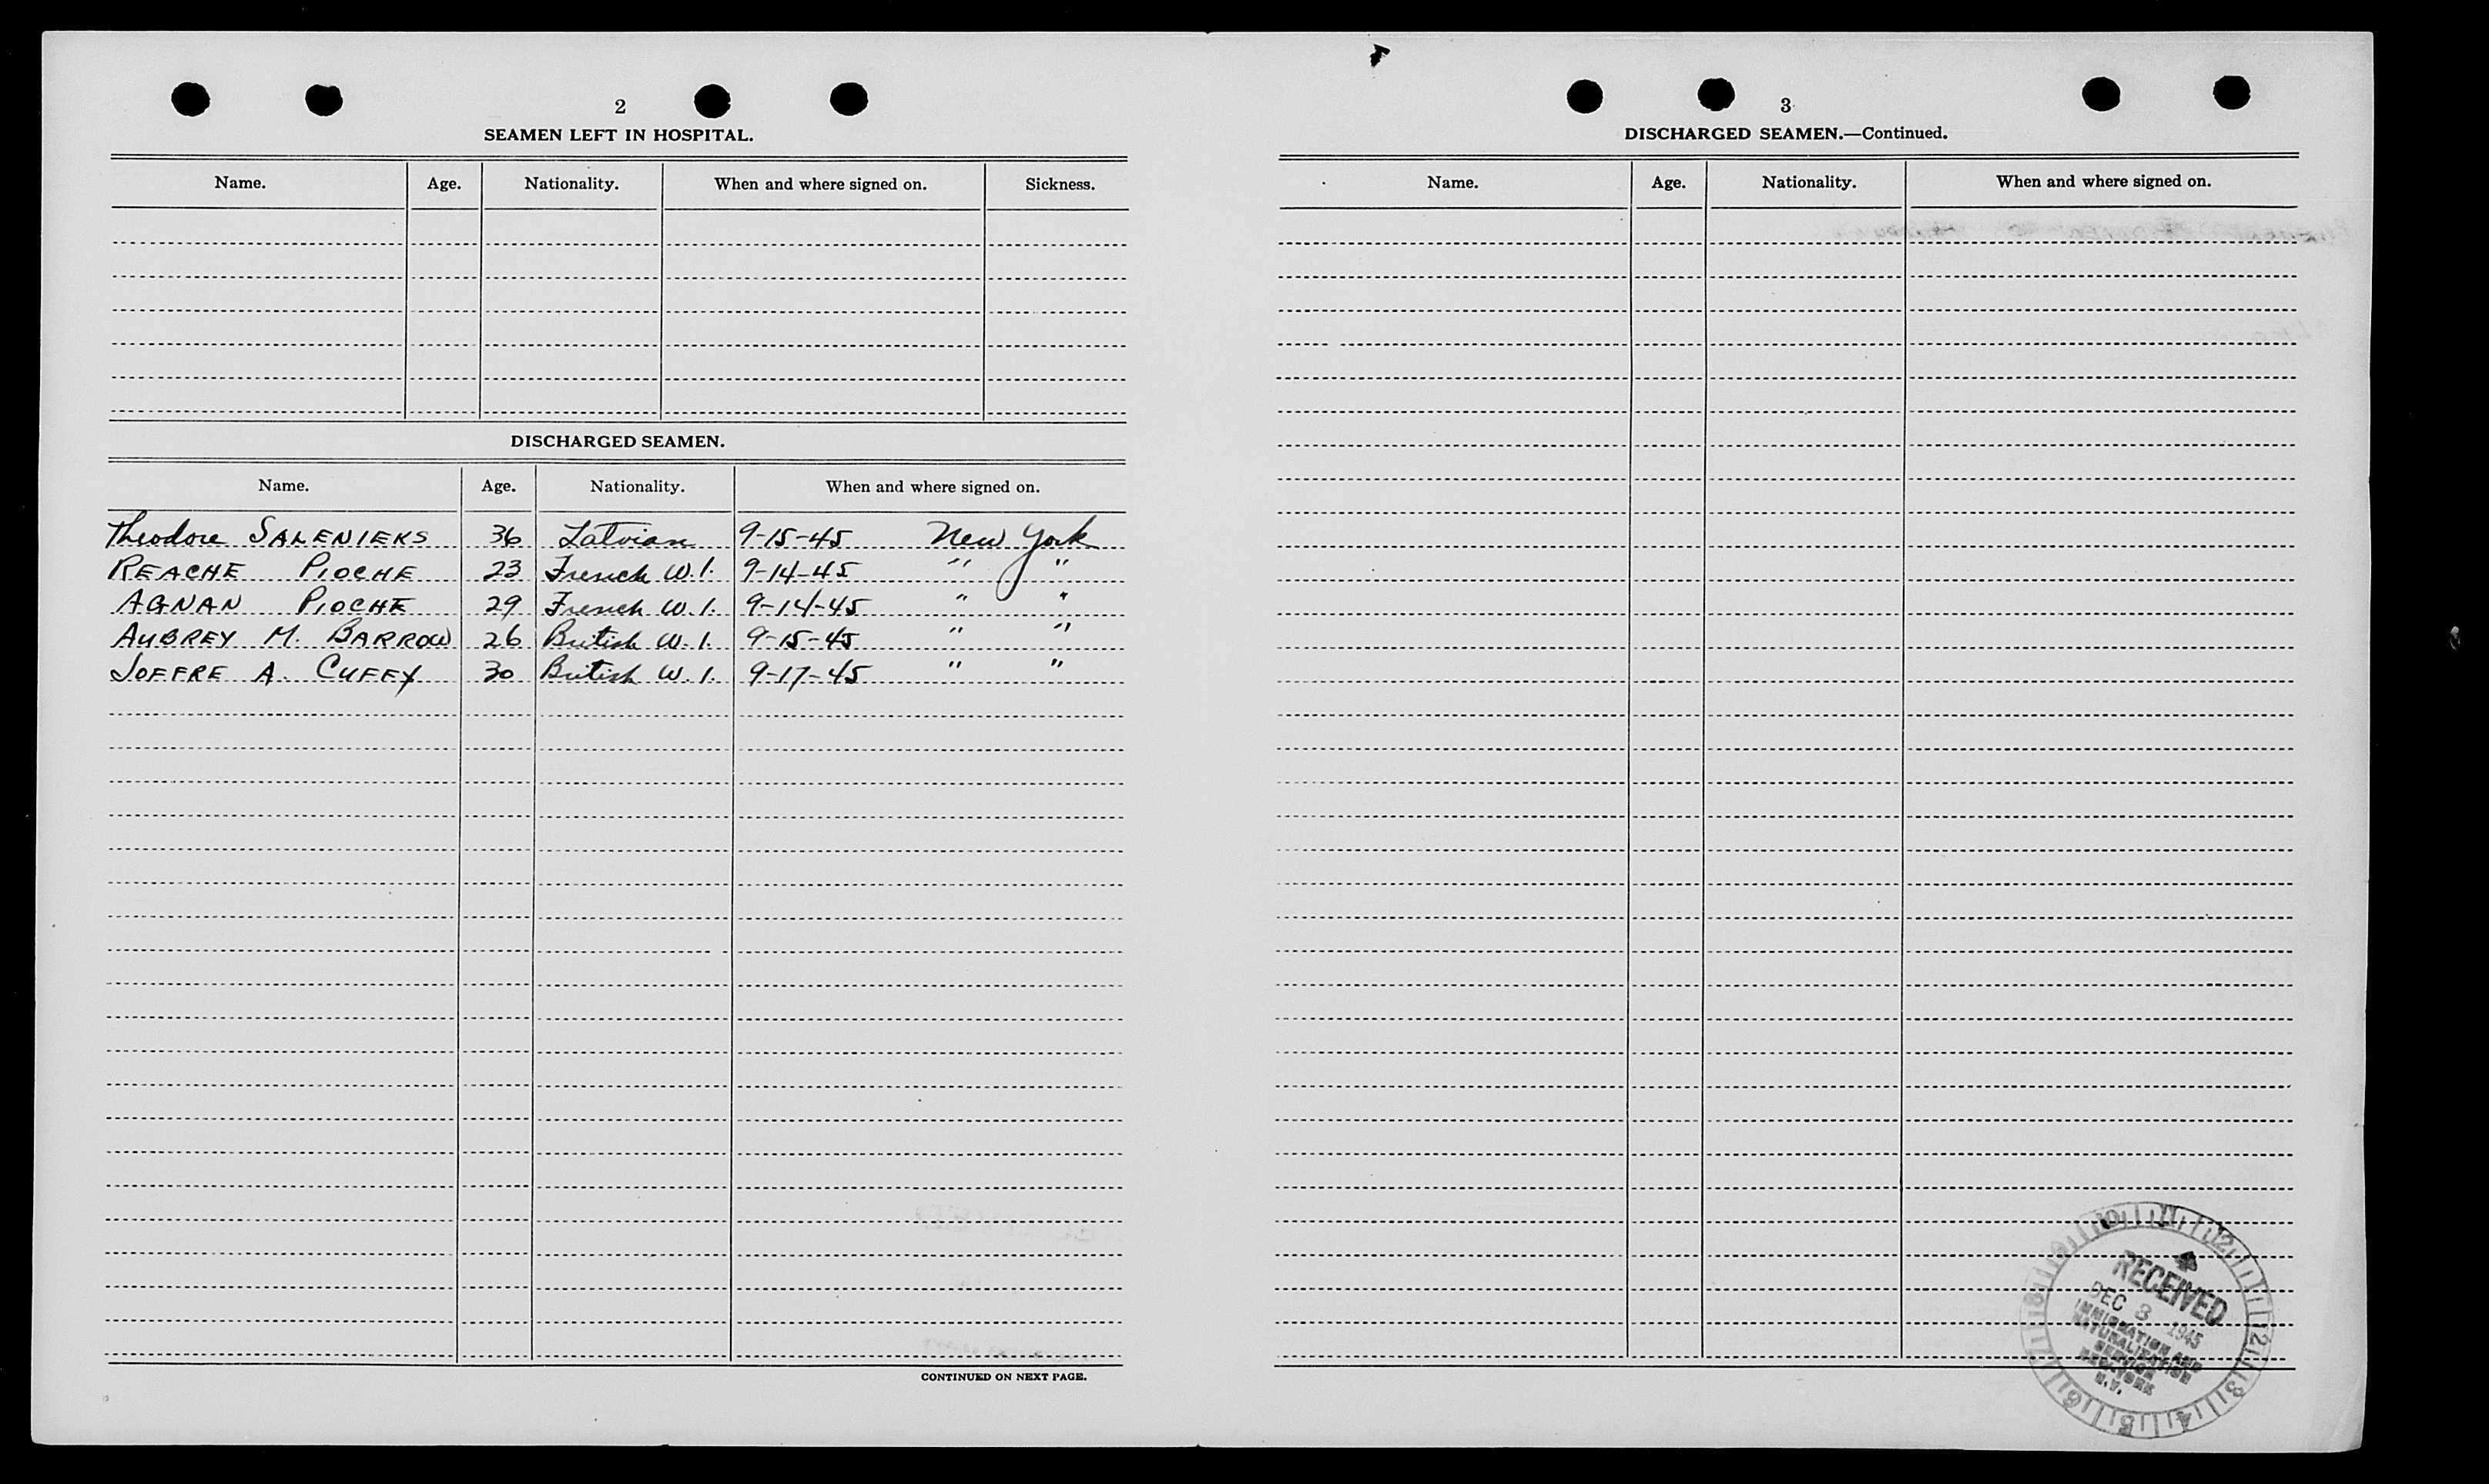 2
SEAMEN LEFT IN HOSPITAL.
Name. Age. Nationality. When and where signed on. Sickness.
DISCHARGED SEAMEN.
Name. Age. Nationality. When and where signed on.
Theodore SALENIEKS 36 Latvian 9-15-45 New York
REACHE PIOCHE 23 French W.I. 9-14-45 " "
AGNAN PIOCHE 29 French W.I. 9-14-45 " "
AUBREY M. BARROW 26 British W.I. 9-15-45 " "
JOFFRE A. CUFFY 30 British W.I. 9-17-45 " "
CONTINUED ON NEXT PAGE.
3
DISCHARGED SEAMEN.—Continued.
Name. Age. Nationality. When and where signed on.
RECEIVED
DEC 3 1945
IMMIGRATION AND
NATURALIZATION
SERVICE
NEW YORK
N.Y.